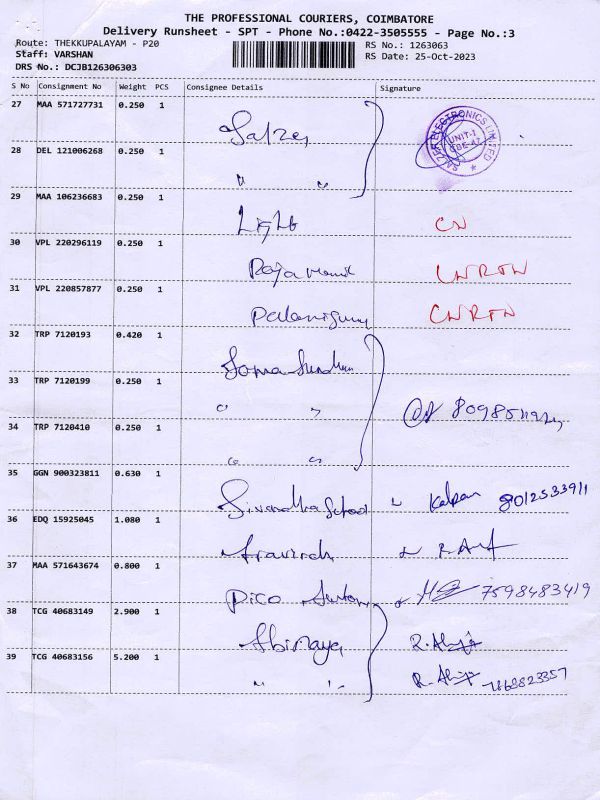 THE PROFESSIONAL COURIERS, COIMBATORE
Delivery Runsheet - SPT - Phone No.:0422-3505555 - Page No.:3
Route: THEKKUPALAYAM - P20 RS No.: 1263063
Staff: VARSHAN RS Date: 25-Oct-2023
DRS No.: DCJB126306303
S No Consignment No Weight PCS Consignee Details Signature
27 MAA 571727731 0.250 1 Salzer
SALZER ELECTRONICS LIMITED UNIT-1 CBE-47
28 DEL 121006268 0.250 1 " "
29 MAA 106236683 0.250 1 Light CN
30 VPL 220296119 0.250 1
31 VPL 220857877 0.250 1 CNRTN
32 TRP 7120193 0.420 1
33 TRP 7120199 0.250 1 " "
34 TRP 7120410 0.250 1 " "
35 GGN 900323811 0.630 1 8012533911
36 EDQ 15925045 1.080 1 Aravind
37 MAA 571643674 0.800 1 Pico 7598483419
38 TCG 40683149 2.900 1 Abinaya
39 TCG 40683156 5.200 1 " "